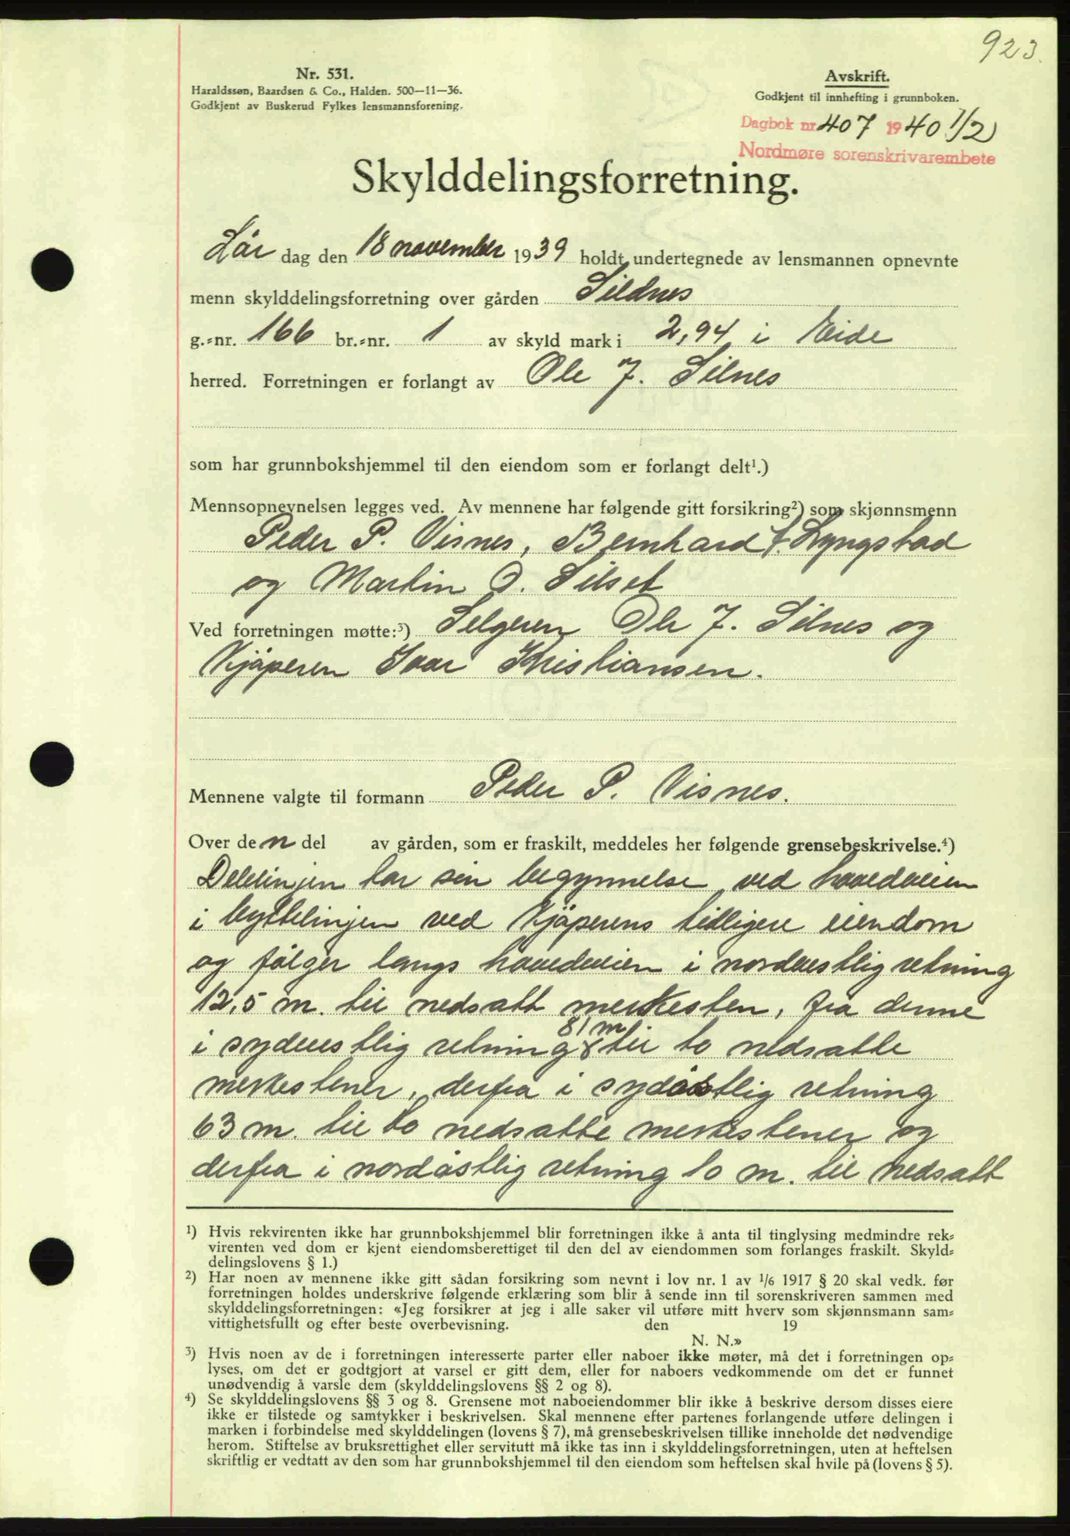 923.
Nr. 531.
Haraldssøn, Baardsen & Co., Halden. 500—11—36.
Godkjent av Buskerud Fylkes lensmannsforening.
Avskrift.
Godkjent til innhefting i grunnboken.
Dagbok nr. 407 1940 1/2
Nordmøre sorenskrivarembete
Skylddelingsforretning.
Lör dag den 18 november 1939 holdt undertegnede av lensmannen opnevnte
menn skylddelingsforretning over gården Sildnes
g.-nr. 166 br.-nr. 1 av skyld mark i 2,94 i Eide
herred. Forretningen er forlangt av Ole J. Silnes
som har grunnbokshjemmel til den eiendom som er forlangt delt¹.)
Mennsopnevnelsen legges ved. Av mennene har følgende gitt forsikring²) som skjønnsmenn
Peder P. Visnes, Bernhard Lyngstad
og Martin O. Silset
Ved forretningen møtte:³) Selgeren Ole J. Silnes og
Kjöperen Ivar Kristiansen.
Mennene valgte til formann Peder P. Visnes.
Over den del av gården, som er fraskilt, meddeles her følgende grensebeskrivelse.⁴)
Delelinjen tar sin begynnelse ved hovedveien
i byttelinjen ved Kjöperens tidligere eiendom
og fölger langs hovedveien i nordvestlig retning
12,5 m. til nedsatt merkesten, fra denne
i sydvestlig retning 81 m til to nedsatte
merkestener, derfra i sydöstlig retning
63 m. til to nedsatte merkestener og
derfra i nordöstlig retning 10 m. til nedsatt
¹) Hvis rekvirenten ikke har grunnbokshjemmel blir forretningen ikke å anta til tinglysing medmindre rek-
virenten ved dom er kjent eiendomsberettiget til den del av eiendommen som forlanges fraskilt. Skyld-
delingslovens § 1.)
²) Har noen av mennene ikke gitt sådan forsikring som nevnt i lov nr. 1 av 1/6 1917 § 20 skal vedk. før
forretningen holdes underskrive følgende erklæring som blir å sende inn til sorenskriveren sammen med
skylddelingsforretningen: «Jeg forsikrer at jeg i alle saker vil utføre mitt hverv som skjønnsmann sam-
vittighetsfullt og efter beste overbevisning. den 19
N. N.»
³) Hvis noen av de i forretningen interesserte parter eller naboer ikke møter, må det i forretningen op-
lyses, om det er godtgjort at varsel er gitt dem, eller for naboers vedkommende om det er funnet
unødvendig å varsle dem (skylddelingslovens §§ 2 og 8).
⁴) Se skylddelingslovens §§ 3 og 8. Grensene mot naboeiendommer blir ikke å beskrive dersom disses eiere
ikke er tilstede og samtykker i beskrivelsen. Skal mennene efter partenes forlangende utføre delingen i
marken i forbindelse med skylddelingen (lovens § 7), må grensebeskrivelsen tillike inneholde det nødvendige
herom. Stiftelse av bruksrettighet eller servitutt må ikke tas inn i skylddelingsforretningen, uten at heftelsen
skriftlig er vedtatt av den som har grunnbokshjemmel til den eiendom som heftelsen skal hvile på (lovens § 5).